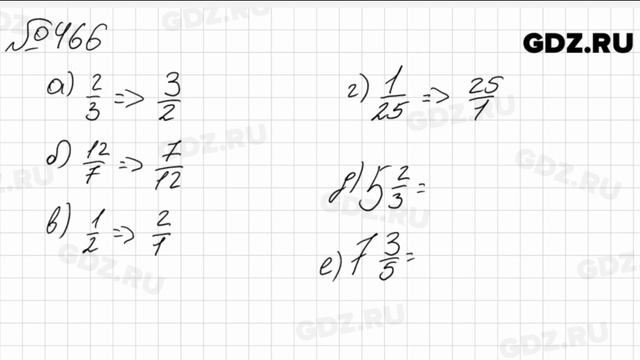 №466
GDZ.RU
а) 2/3 => 3/2
б) 12/7 => 7/12
в) 1/2 => 2/1
г) 1/25 => 25/1
д) 5 2/3 =
е) 7 3/5 =
GDZ.RU
GDZ.RU
GDZ.RU
GDZ.RU
GDZ.RU
GDZ.RU
GDZ.RU
GDZ.RU